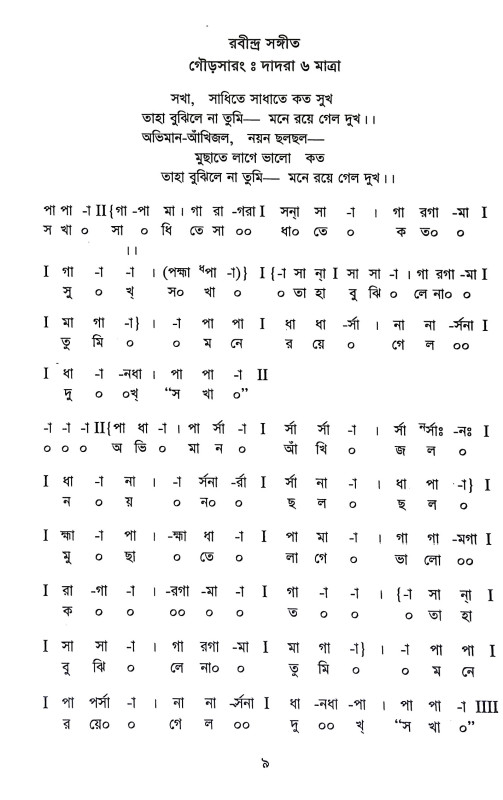 রবীন্দ্র সঙ্গীত
গৌড়সারং ঃ দাদরা ৬ মাত্রা
সখা, সাধিতে সাধাতে কত সুখ
তাহা বুঝিলে না তুমি— মনে রয়ে গেল দুখ।।
অভিমান-আঁখিজল, নয়ন ছলছল—
মুছাতে লাগে ভালো কত
তাহা বুঝিলে না তুমি— মনে রয়ে গেল দুখ।।
পা পা -া II {গা -পা মা। গা রা -গরা I সন্া সা -া । গা রগা -মা I
স খা ০ সা ০ ধি তে সা ০০ ধা০ তে ০ ক ত০ ০
।।
I গা -া -া । (পহ্মা ধপা -া)} I {-া সা ন্া I সা সা -া । গা রগা -মা I
সু ০ খ্ স০ খা ০ ০ তা হা বু ঝি ০ লে না০ ০
I মা গা -া} । -া পা পা I ধা ধা -র্সা । না না -র্সনা I
তু মি ০ ০ ম নে র য়ে ০ গে ল ০০
I ধা -া -নধা । পা পা -া II
দু ০ ০খ্ “স খা ০”
-া -া -া II {পা ধা -া । পা র্সা -া I র্সা র্সা -া । র্সা নর্সাঃ -নঃ I
০ ০ ০ অ ভি ০ মা ন ০ আঁ খি ০ জ ল ০
I ধা -া না । -া র্সনা -র্রা I র্সা না -া । ধা পা -া} I
ন ০ য় ০ ন০ ০ ছ ল ০ ছ ল ০
I হ্মা -া পা । -হ্মা ধা -া I পা মা -া । গা গা -মগা I
মু ০ ছা ০ তে ০ লা গে ০ ভা লো ০০
I রা -গা -া । -রগা -মা -া I গা -া -া । {-া সা ন্া I
ক ০ ০ ০০ ০ ০ ত ০ ০ ০ তা হা
I সা সা -া । গা রগা -মা I মা গা -া} । -া পা পা I
বু ঝি ০ লে না০ ০ তু মি ০ ০ ম নে
I পা পর্সা -া । না না -র্সনা I ধা -নধা -পা । পা পা -া IIII
র য়ে০ ০ গে ল ০০ দু ০০ খ্ “স খা ০”
৯